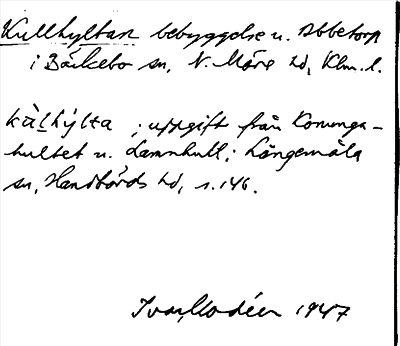 Kullhyltan bebyggelse u. Abbetorp
i Bäckebo sn, N. Möre hd, Klm. l.
kàl̲hýlta ; uppgift från Konunga-
hultet u. Lamnhult, i Långemåla
sn, Handbörds hd, s. 146.
Ivar Modéer 1947